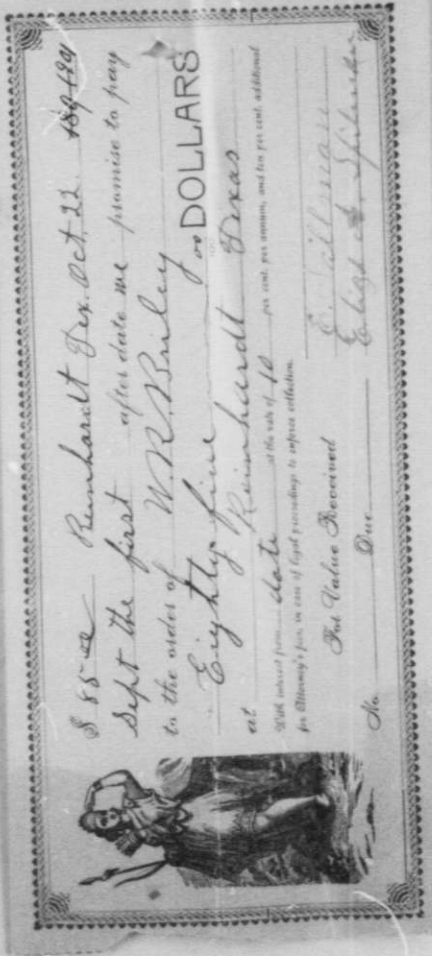 $ 85 00 Reinhardt Tex. Oct. 22 189 1891
Sept the first after date we promise to pay
to the order of W. R. Briley
Eighty five 00/100 DOLLARS
at Reinhardt Texas
With interest from date at the rate of 10 per cent. per annum, and ten per cent. additional
for Attorney's fees, in case of legal proceedings to enforce collection.
For Value Received
E. Tillman
No. Due Eliza A.